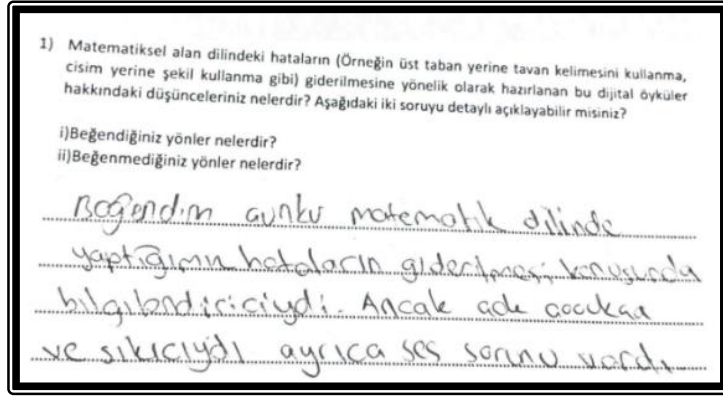 1) Matematiksel alan dilindeki hataların (Örneğin üst taban yerine tavan kelimesini kullanma,
cisim yerine şekil kullanma gibi) giderilmesine yönelik olarak hazırlanan bu dijital öyküler
hakkındaki düşünceleriniz nelerdir? Aşağıdaki iki soruyu detaylı açıklayabilir misiniz?
i)Beğendiğiniz yönler nelerdir?
ii)Beğenmediğiniz yönler nelerdir?
Beğendim çünkü matematik dilinde
yaptığımın hataların giderilmesi konusunda
bilgilendiriciydi. Ancak çocukça
ve sıkıcıydı ayrıca ses sorunu vardı